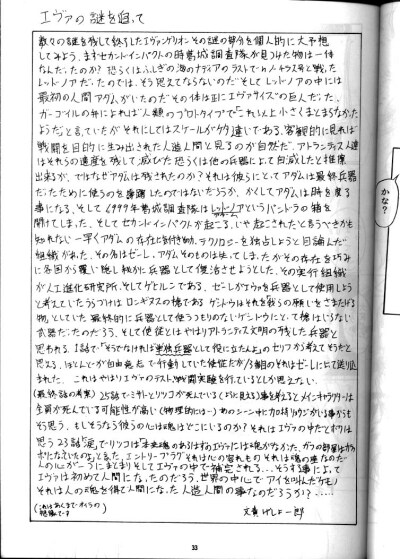 エヴァの謎を追って
数々の謎を残して終了したエヴァンゲリオンその謎の部分を個人的に大予想
してみよう。まずセカンドインパクトの時葛城調査隊が見つけた物は一体
なんだったのか?恐らくはふしぎの海のナディアのラストでN-ノーチラス号と戦った
レッドノアだったのでは、そう思えてならないのだそしてレッドノアの中には
最初の人間アダムがいたのだその体は正にエヴァサイズの巨人だった。
ガーゴイルの弁によれば人類のプロトタイプで「これ以上小さくまとまらなかった
ようだ」と言っていたがそれにしてはスケールがケタ違いである、客観的に見れば
戦闘を目的に生み出された人造人間と見るのが自然だ、アトランティス人達
はそれらの遺産を残して滅びた恐らくは他の兵器によって自滅したと推慮
出来るが、ではなぜアダムは残されたのか?それは彼らにとってアダムは最終兵器
だったために使うのを躊躇したのではないだろうか、かくしてアダムは時を渡る
事になる、そして6999年葛城調査隊はレッドノアというパンドラの箱を
開けてしまった、そしてセカンドインパクトが起こる、いや起こされたと言うべきかも
知れない一早くアダムの存在に気付き
テクノロジーを独占しようと目論んだ
組織があった、その名はゼーレ、アダムそのものは失ってしまったがその存在を巧みに
各国から覆い隠し秘かに兵器として復活させようとした、その実行組織
が人工進化研究所、そしてゲヒルンである、ゼーレがエヴァを兵器として使用しよう
と考えていたうらづけはロンギヌスの槍である
物、としていた最終的に兵器として使うつもりのないゲンドウにとって槍はいらない
武器だったのだろう、そして使徒とはやはりアトランティス文明の残した兵器と
思われる、1話で「そうでなければ単独兵器として役に立たんよ」のセリフから考えてそうだと
思える、ほとんどが自由意志で行動していた使徒だが13動のそれはゼーレにて送り込
まれた、これはやはりエヴァのテスト、実戦実験を行っているとしか思えない、
(最終話の考案) 25話でミサトとリツコが死んでいる(ように見える)事を考えるとメインキャラクターは
全員が死んでいる可能性が高い(物理的には…)あのシーンの中に加持リョウジがいる事からも
そう思う、もしそうなら彼らの心は魂はどこにいるのか?それはエヴァの中だとボクは
思う23話「涙」でリツコは「本来魂のあるはずのエヴァには魂がなかった、ガフの部屋はカラッ
ポになっていたの」と言った、エントリープラグそれは心の容れものそれは魂の座なのだ
人の心が一つにまとまりそしてエヴァの中で補完される…、そうする事によって
エヴァは初めて人間になったのだろう、世界の中心でアイを叫んだケモノ
それは人の魂を得て人間になった人造人間の事なのだろうか?……
(これはあくまでボクらの
想像です)
文責
33
かな?